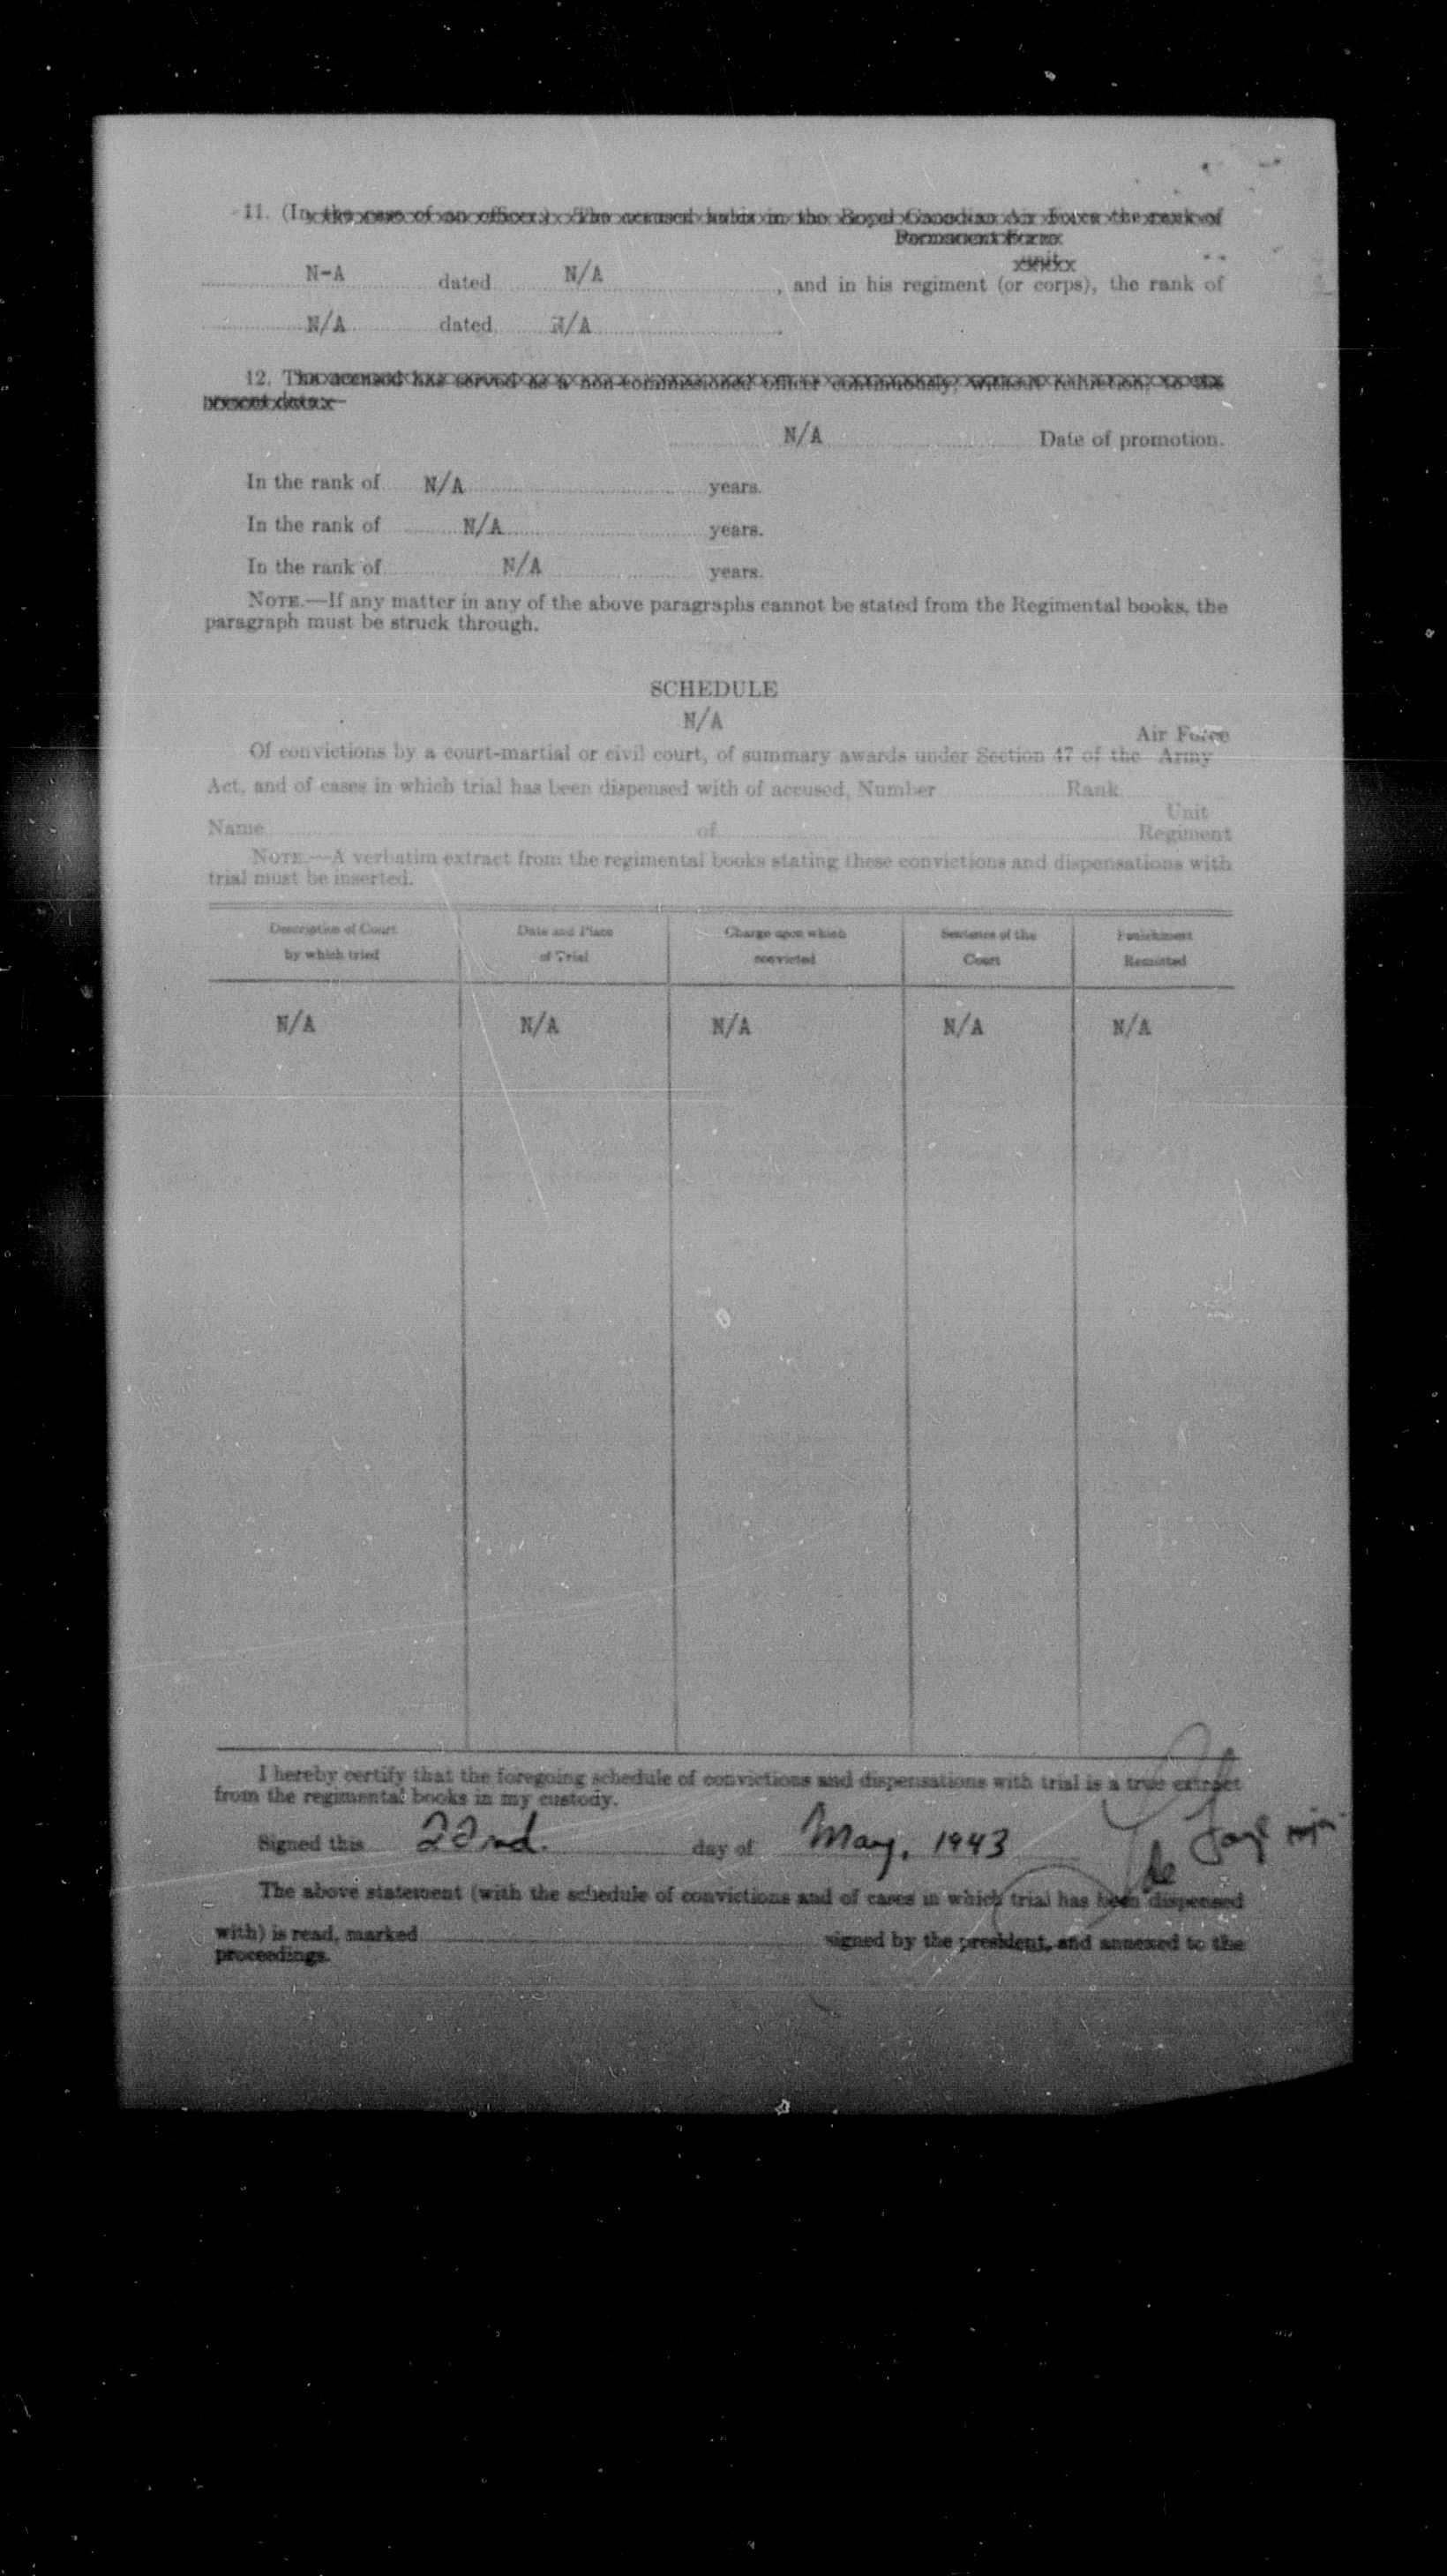 11. (In the case of an officer.) The accused holds in the Royal Canadian Air Force the rank of
Permanent Force
unit
N-A dated N/A , and in his regiment (or corps), the rank of
N/A dated N/A .
12. The accused has served as a non-commissioned officer continuously, without reduction, to the
present date.
N/A Date of promotion.
In the rank of N/A years.
In the rank of N/A years.
In the rank of N/A years.
NOTE.—If any matter in any of the above paragraphs cannot be stated from the Regimental books, the
paragraph must be struck through.
SCHEDULE
N/A
Air Force
Of convictions by a court-martial or civil court, of summary awards under Section 47 of the Army
Act, and of cases in which trial has been dispensed with of accused, Number Rank
Unit
Name of Regiment
NOTE.—A verbatim extract from the regimental books stating these convictions and dispensations with
trial must be inserted.
Description of Court Date and Place Charge upon which Sentence of the Punishment
by which tried of Trial convicted Court Remitted
N/A N/A N/A N/A N/A
I hereby certify that the foregoing schedule of convictions and dispensations with trial is a true extract
from the regimental books in my custody.
Signed this 22nd. day of May, 1943
The above statement (with the schedule of convictions and of cases in which trial has been dispensed
with) is read, marked signed by the president, and annexed to the
proceedings.